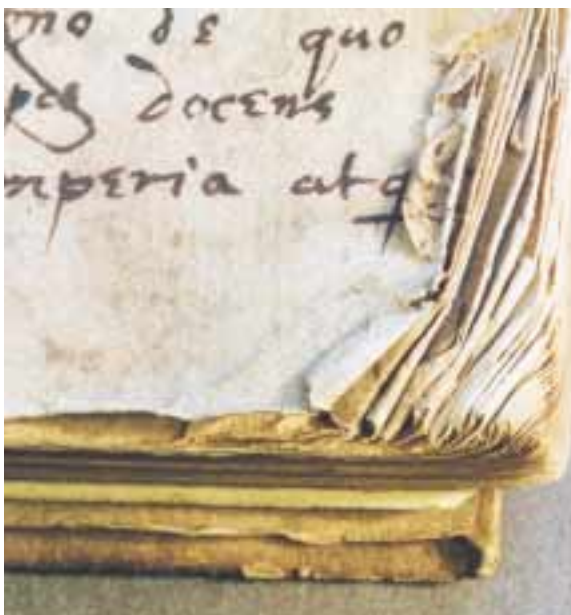 no de quo
docens
mperia atq